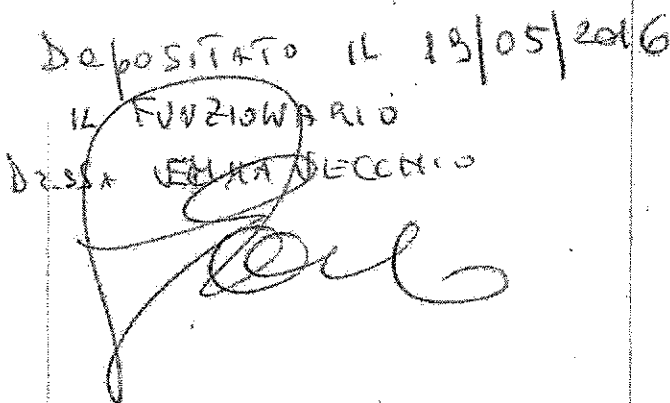 Depositato il 19/05/2016
il FUNZIONARIO
DR.SSA VECCHIO